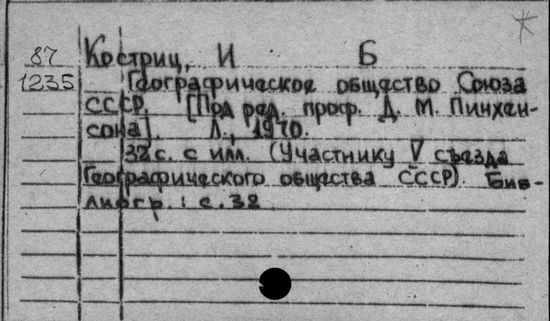 87 Костриц, И Б
1235 Географическое общество Союза
СССР. [Под ред. проф. Д. М. Пинхен-
сона]. Л., 1970.
32 с. с илл. (Участнику V съезда
Географического общества СССР). Биб-
лиогр.: с. 32